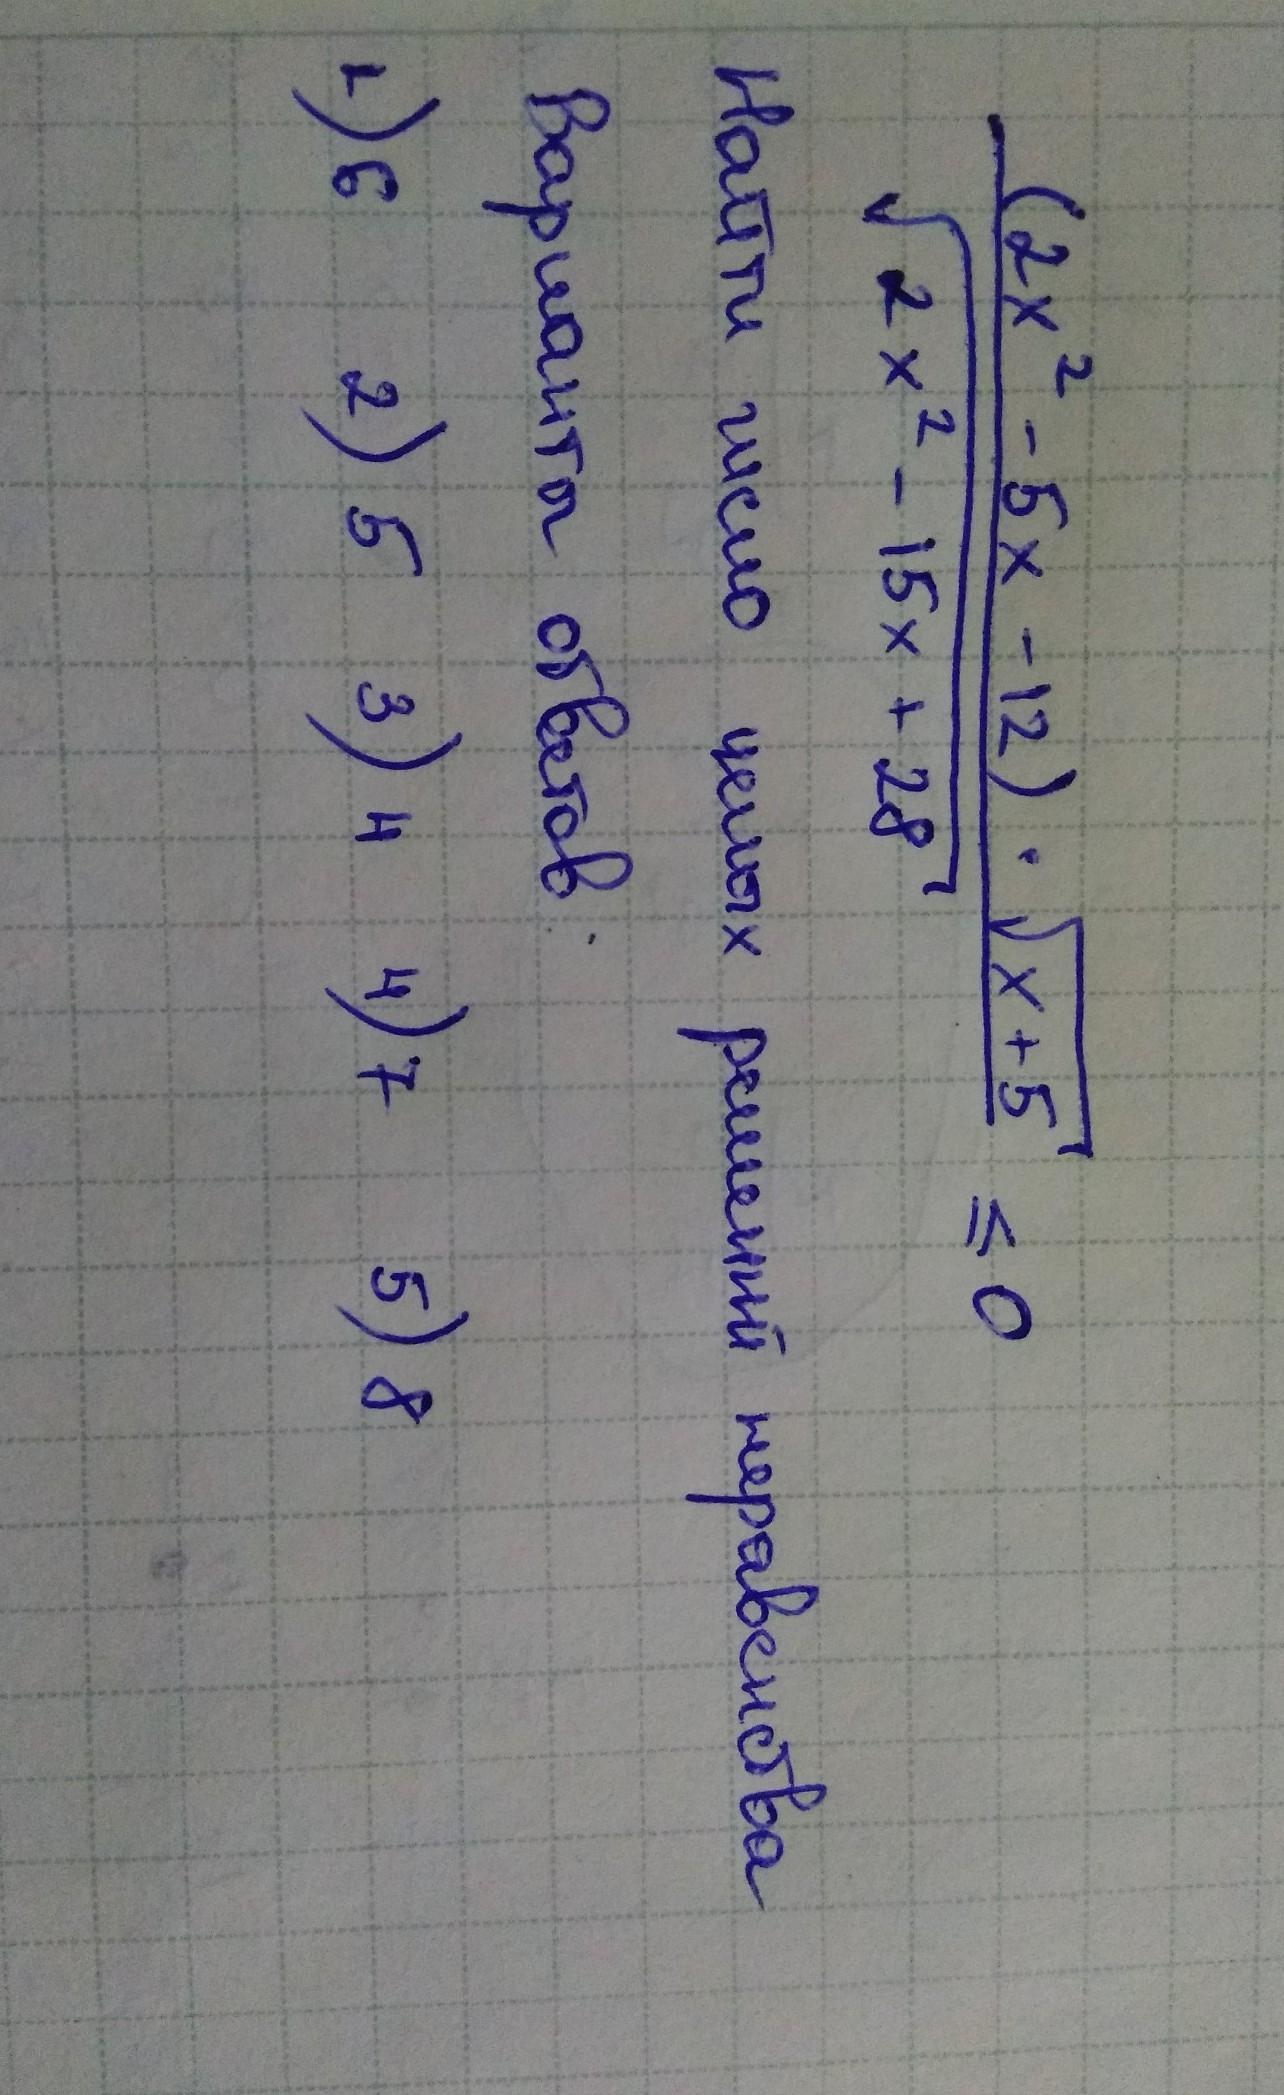 (2x² - 5x - 12) · √(x + 5)
√(2x² - 15x + 28) ≤ 0
Найти число целых решений неравенства
Варианты ответов:
1) 6 2) 5 3) 4 4) 7 5) 8